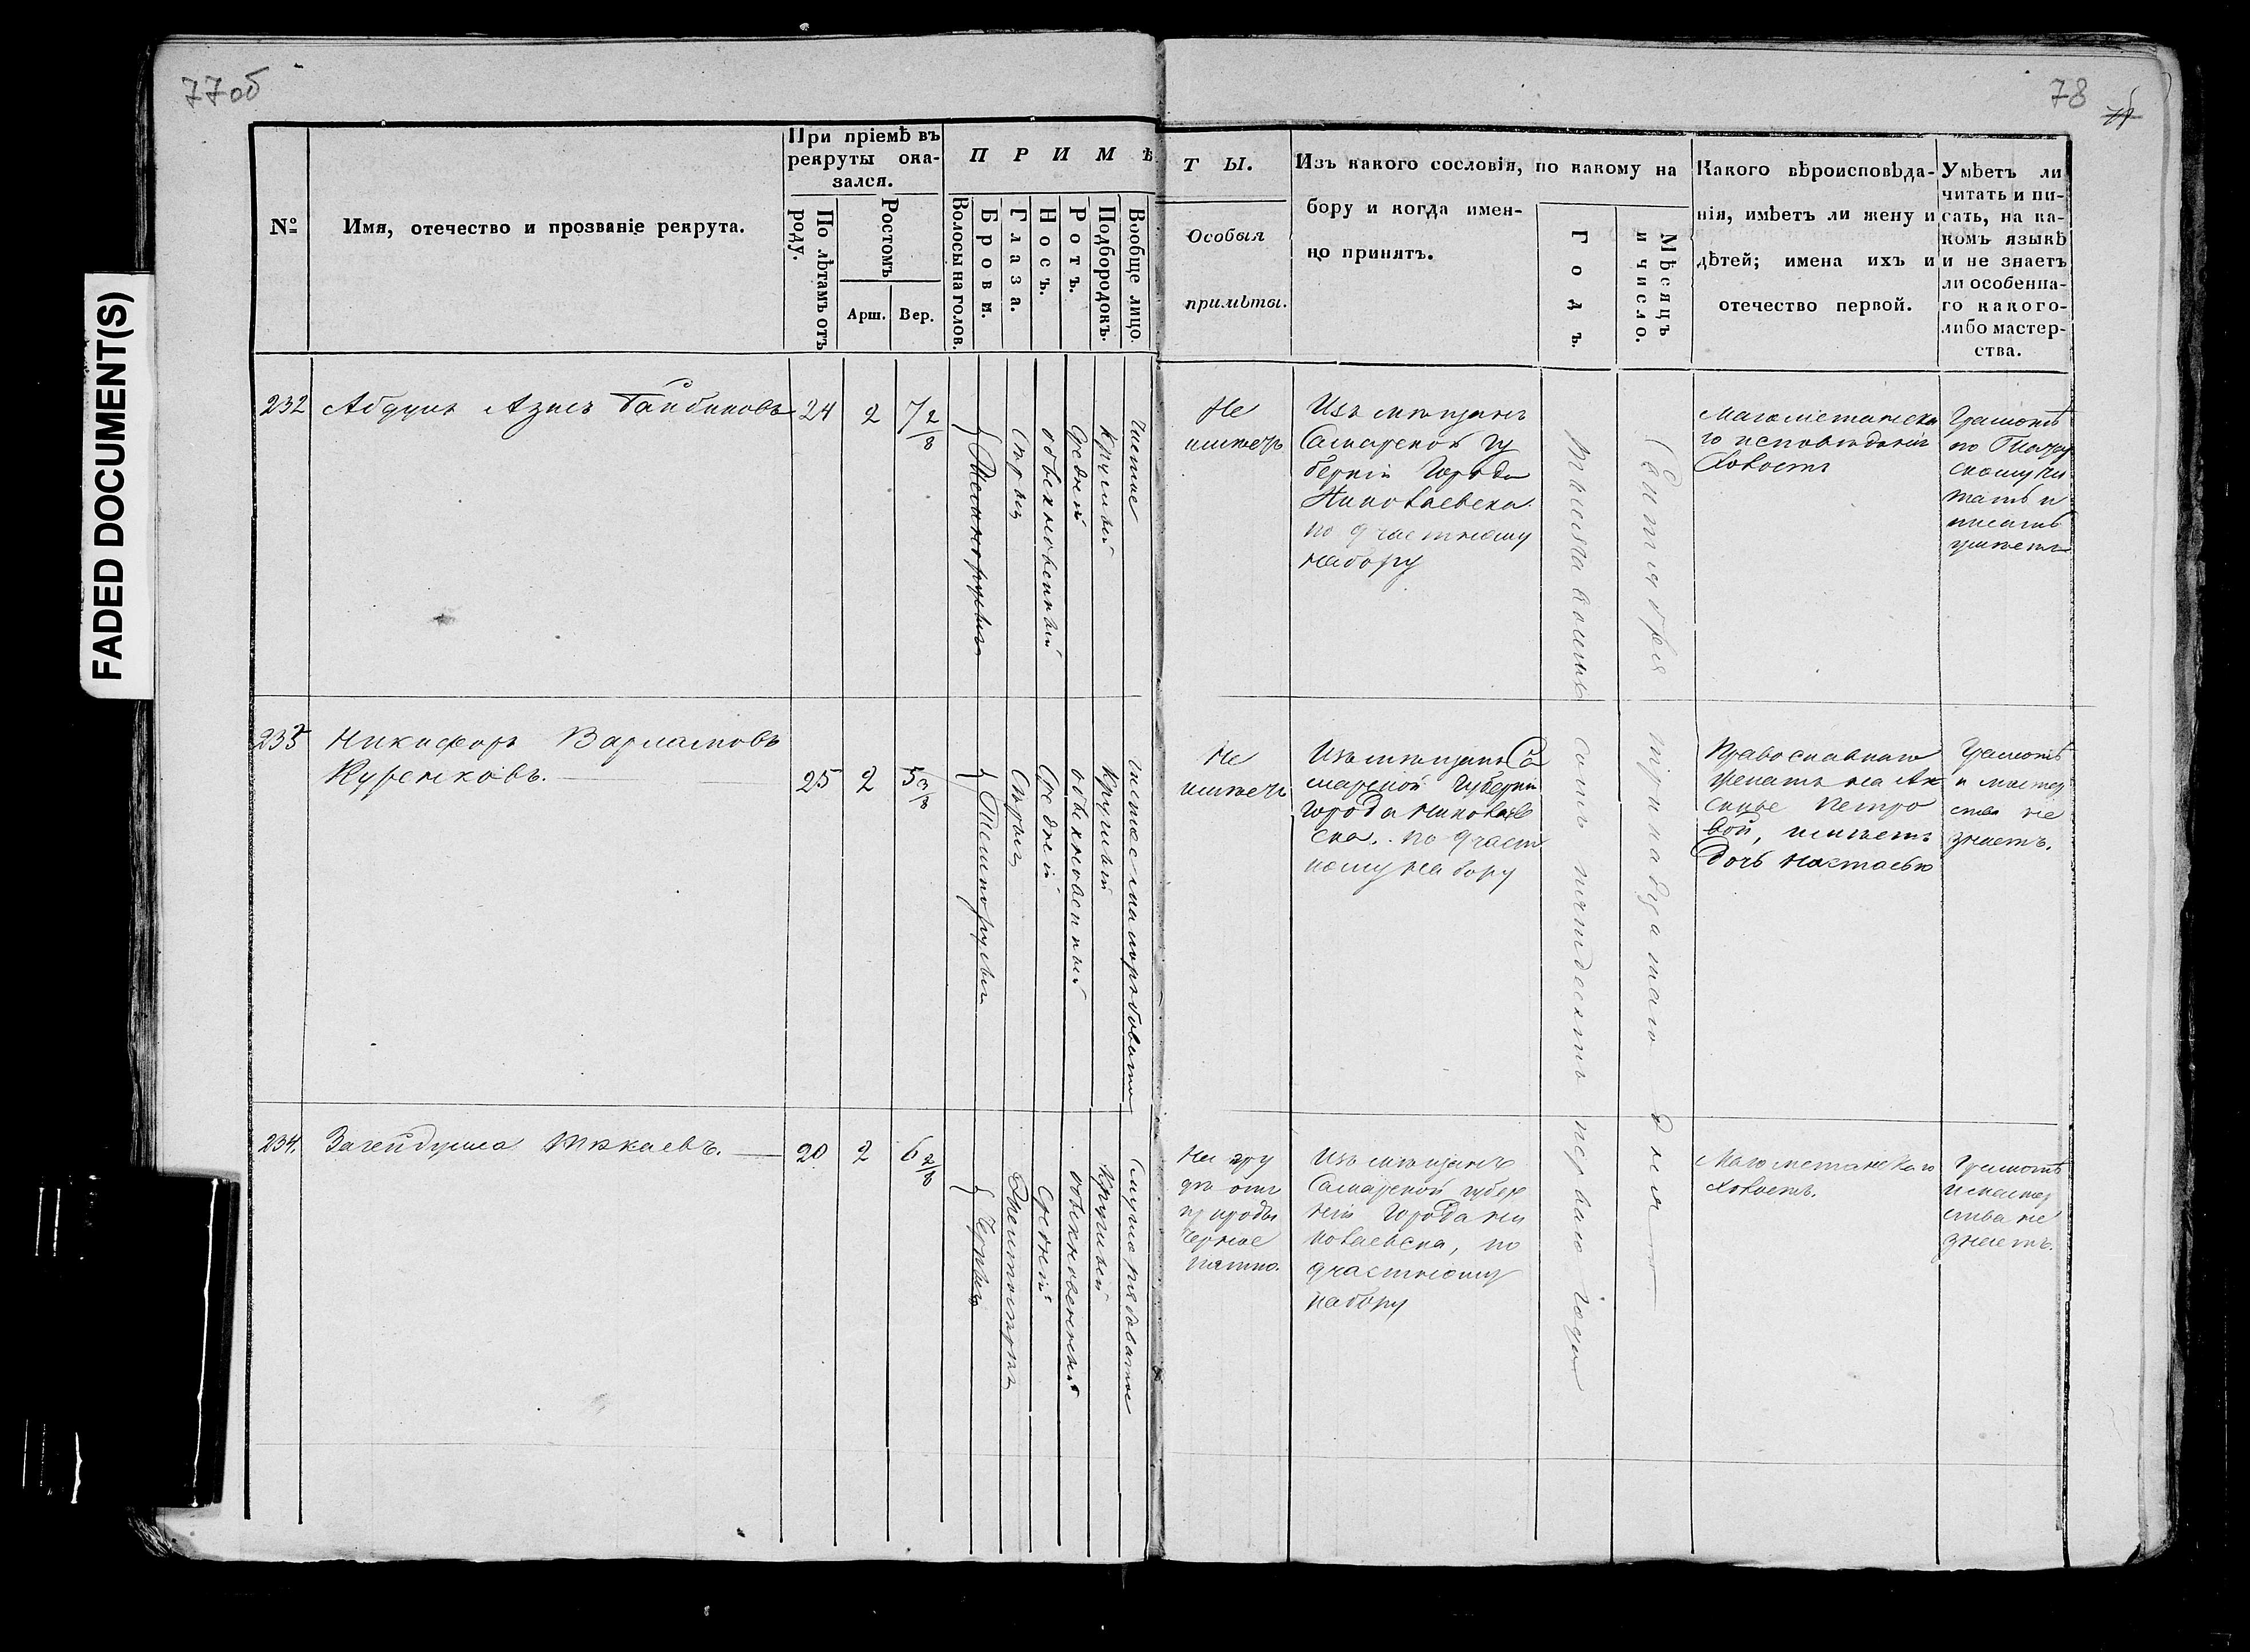 77об
78
FADED DOCUMENT(S)
№
Имя, отечество и прозваніе рекрута.
При пріемѣ въ
рекруты ока-
зался.
По лѣтамъ отъ
роду.
Ростомъ
Арш.
Вер.
П Р И М Ѣ
Волосы на голов.
Брови.
Глаза.
Носъ.
Ротъ.
Подбородокъ.
Вообще лицо.
Т Ы.
Особыя
примѣты.
Изъ какого сословія, по какому на
бору и когда имен-
но принятъ.
Годъ.
Мѣсяцъ
и число.
Какого вѣроисповѣда-
нія, имѣетъ ли жену и
дѣтей; имена ихъ и
отечество первой.
Умѣетъ ли
читать и пи-
сать, на ка-
комъ языкѣ
и не знаетъ
ли особенна-
го какого-
либо мастер-
ства.
232
Абдулъ Азисъ
24
2
7 2/8
Темнорусыя
Сѣрыя
обыкновенный
Средній
Круглый
чистое
Не
имѣетъ
Изъ мѣщанъ
Самарской гу
берніи Города
Николаевска
по частному
набору
Тысяча восемь сотъ пятьдесятъ перваго года
Сентября тринадцатаго дня
Магометанска
го исповѣданія
Холостъ
Грамотѣ
по Татар
скому чи
тать и
писать
умѣетъ
233
Никифоръ Варламовъ
Куренковъ.
25
2
5 3/8
Темнорусыя
Сѣрыя
Средній
обыкновенный
Круглый
чистое мало рябовато
Не
имѣетъ
Изъ мѣщанъ Са
марской Губерніи
города Николаев
ска. по частн
ному набору
Православнаго
женатъ на Ак
синье Петро
вой, имѣетъ
дочь Настасью
Грамотѣ
и мастер
ства не
знаетъ.
234.
20
2
6 2/8
Черныя
Средній
обыкновенный
Круглый
Смугло рябоватое
На гру
ди отъ
природы
черное
пятно.
Изъ мѣщанъ
Самарской губер
ніи Города Ни
колаевска, по
частному
набору
Магометанскаго
Холостъ.
Грамотѣ
и мастер
ства не
знаетъ.